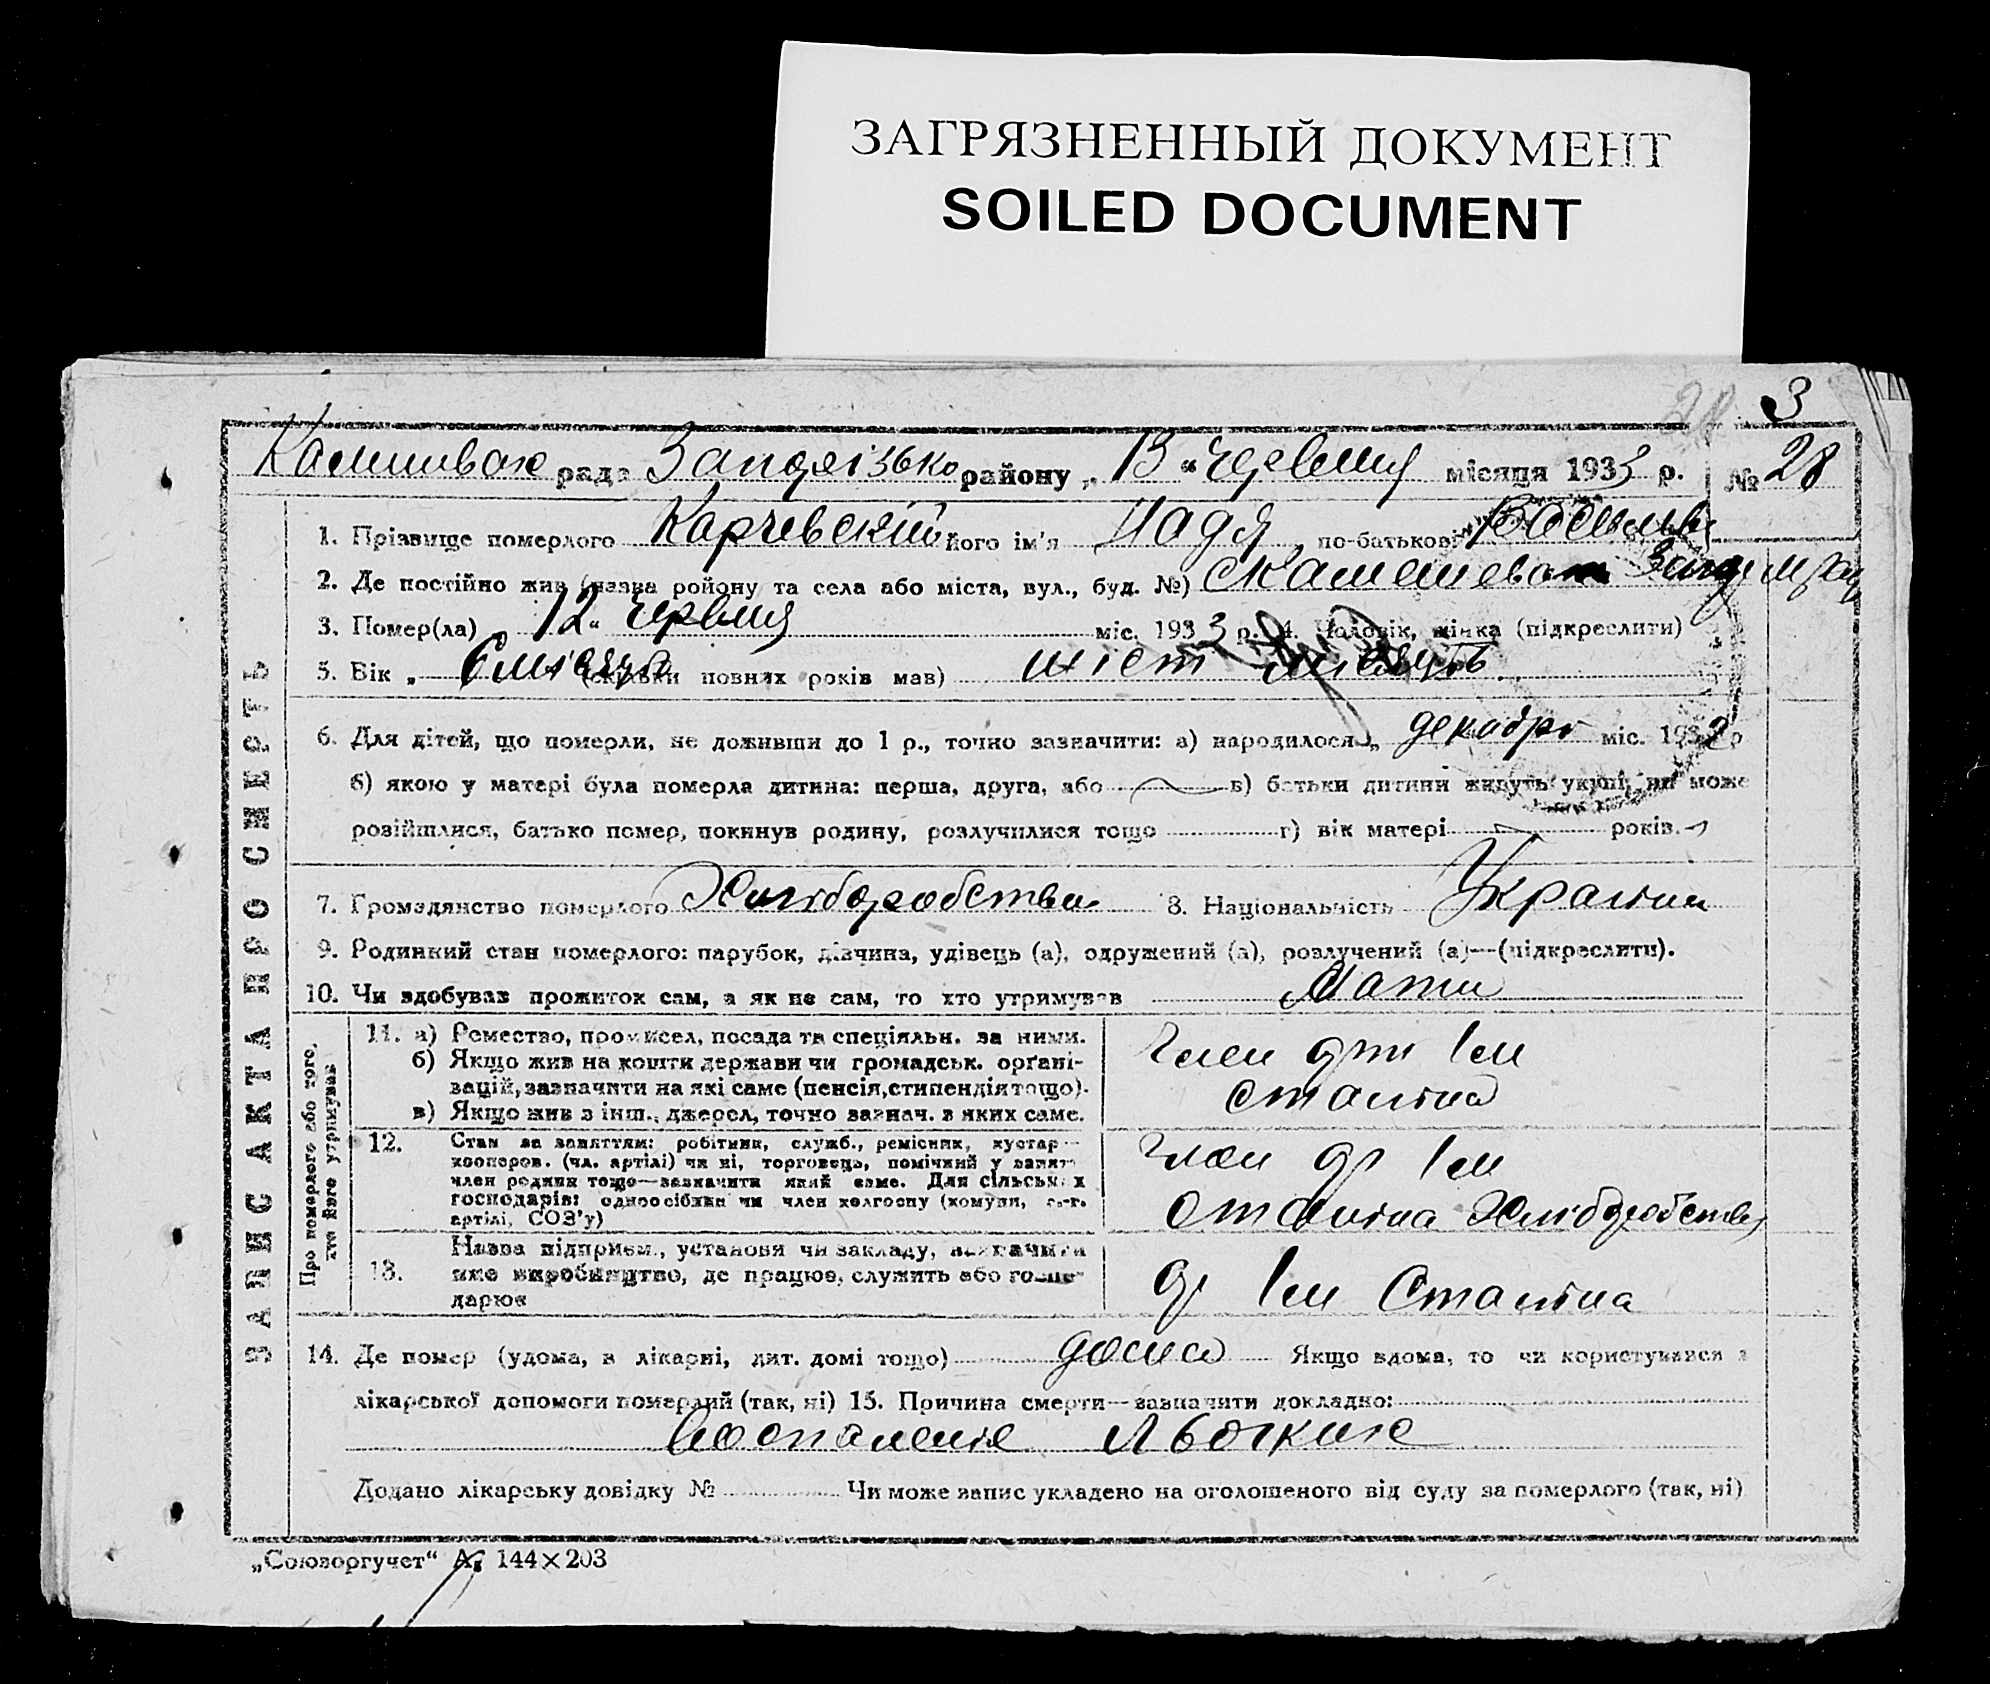 ЗАГРЯЗНЕННЫЙ ДОКУМЕНТ
SOILED DOCUMENT
3
28
рада Запорізько району „ 13 “ червня місяця 1933 р. № 28
ЗАПИС АКТА ПРО СМЕРТЬ
1. Прізвище померлого Карчевский його ім'я Надя, по-батькові
2. Де постійно жив (назва ройону та села або міста, вул., буд. №)
3. Помер(ла) „ 12 “ червня міс. 1933 р. 4. Чоловік, жінка (підкреслити)
5. Вік „ 6 місяця (скільки повних років мав) шіст місяць
6. Для дітей, що померли, не доживши до 1 р., точно зазначити: а) народилося „ декабрь міс. 1932 р
б) якою у матері була померла дитина: перша, друга, або в) батьки дитини живуть укупі, чи може
розійшлися, батько помер, покинув родину, розлучилися тощо г) вік матері років.
7. Громадянство померлого Хліборобства 8. Національність Украінц
9. Родинний стан померлого: парубок, дівчина, удівець (а), одружений (а), розлучений (а)—(підкреслити).
10. Чи здобував прожиток сам, а як не сам, то хто утримував Мати
Про померлого або того, хто його утримував
11. а) Ремество, промисел, посада та спеціяльн. за ними.
б) Якщо жив на кошти держави чи громадськ. орґані-
зацій, зазначити на які саме (пенсія, стипендія тощо).
в) Якщо жив з інш., джерел, точно зазнач. з яких саме.
член арт ім
Сталіна
12. Стан за заняттям: робітник, служб., ремісник, кустар
кооперов. (чл. артілі) чи ні, торговець, помічний у занят.
член родини тощо—зазначити який саме. Для сільськ. х
господарів: одноосібник чи член колгоспу (комуни, с.-г.
артілі, СОЗ'у)
член ар ім
Сталіна Хліборобства
13. Назва підприєм., установи чи закладу, зазначити
яке виробництво, де працює, служить або госпо-
дарює
ар ім Сталіна
14. Де помер (удома, в лікарні, дит. домі тощо) дома Якщо вдома, то чи користувався з
лікарської допомоги померлий (так, ні) 15. Причина смерти—зазначити докладно:
Воспаленіе Льогких
Додано лікарську довідку № Чи може запис укладено на оголошеного від суду за померлого (так, ні)
„Союзоргучет“ А5 144×203